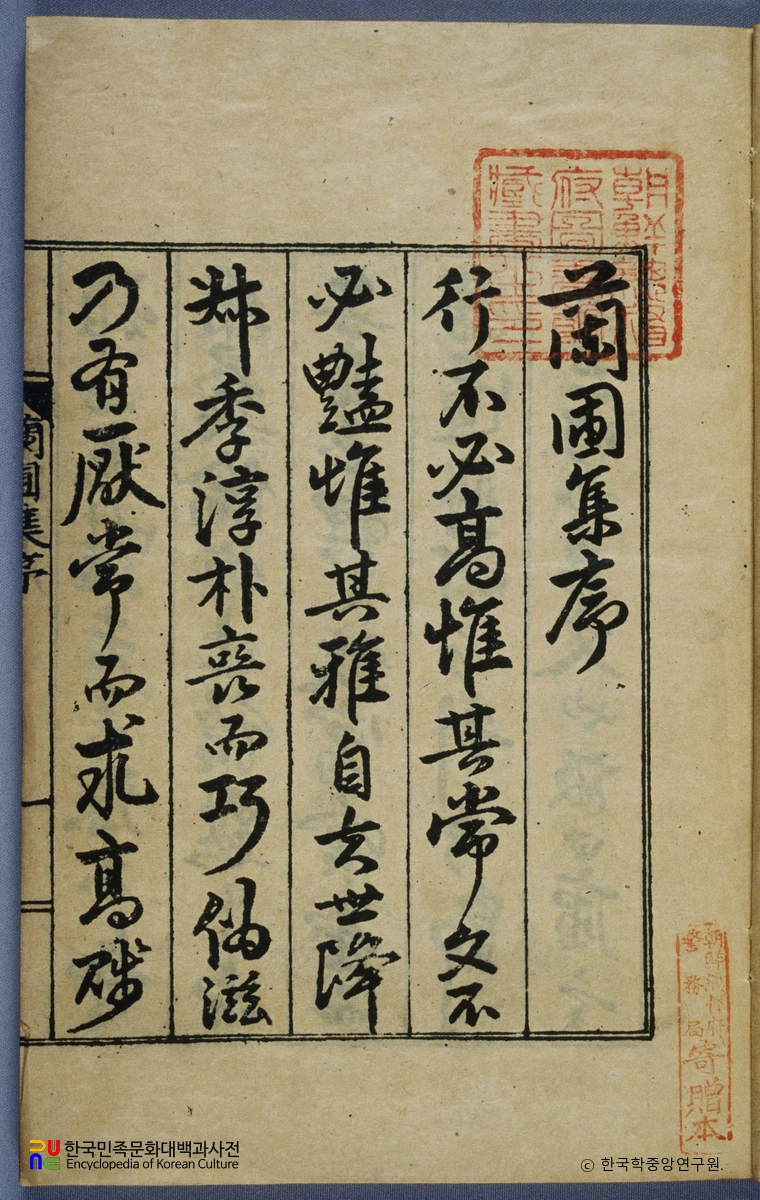 朝鮮總督府圖書館藏書之印
蘭圃集序
行不必高惟其常文不
必豔惟其雅自世降
叔季淳朴喪而巧偽滋
乃有厭常而求高
蘭圃集序
朝鮮總督府
警務局
寄贈本
한국민족문화대백과사전
Encyclopedia of Korean Culture
© 한국학중앙연구원.